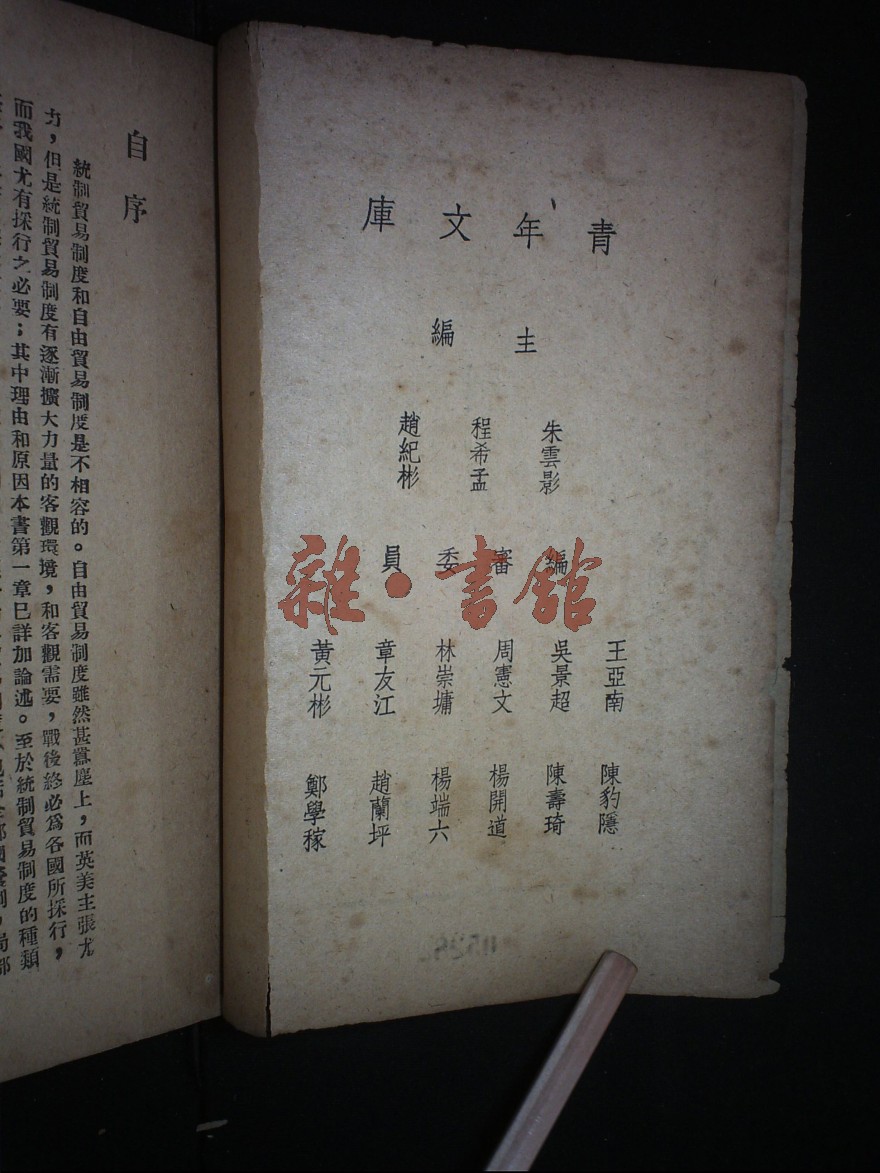 青年文庫
主編
朱雲影
程希孟
趙紀彬
編審委員
王亞南
吳景超
周憲文
林崇墉
章友江
黃元彬
陳豹隱
陳壽琦
楊開道
楊端六
趙蘭坪
鄭學稼
雜·書館
自序
統制貿易制度和自由貿易制度是不相容的。自由貿易制度雖然甚囂塵上,而英美主張尤
力,但是統制貿易制度有逐漸擴大力量的客觀環境,和客觀需要,戰後終必爲各國所採行,
而我國尤有採行之必要;其中理由和原因本書第一章已詳加論述。至於統制貿易制度的種類